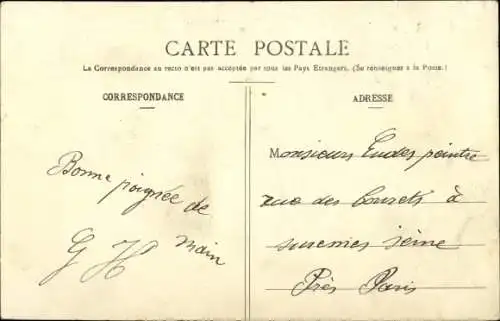 CARTE POSTALE
La Correspondance au recto n'est pas acceptée par tous les Pays Etrangers. (Se renseigner à la Poste.)
CORRESPONDANCE
ADRESSE
Bonne poignée de
main
G H
Monsieur Eudes peintre
rue des Bourets à
suresnes seine
Près Paris